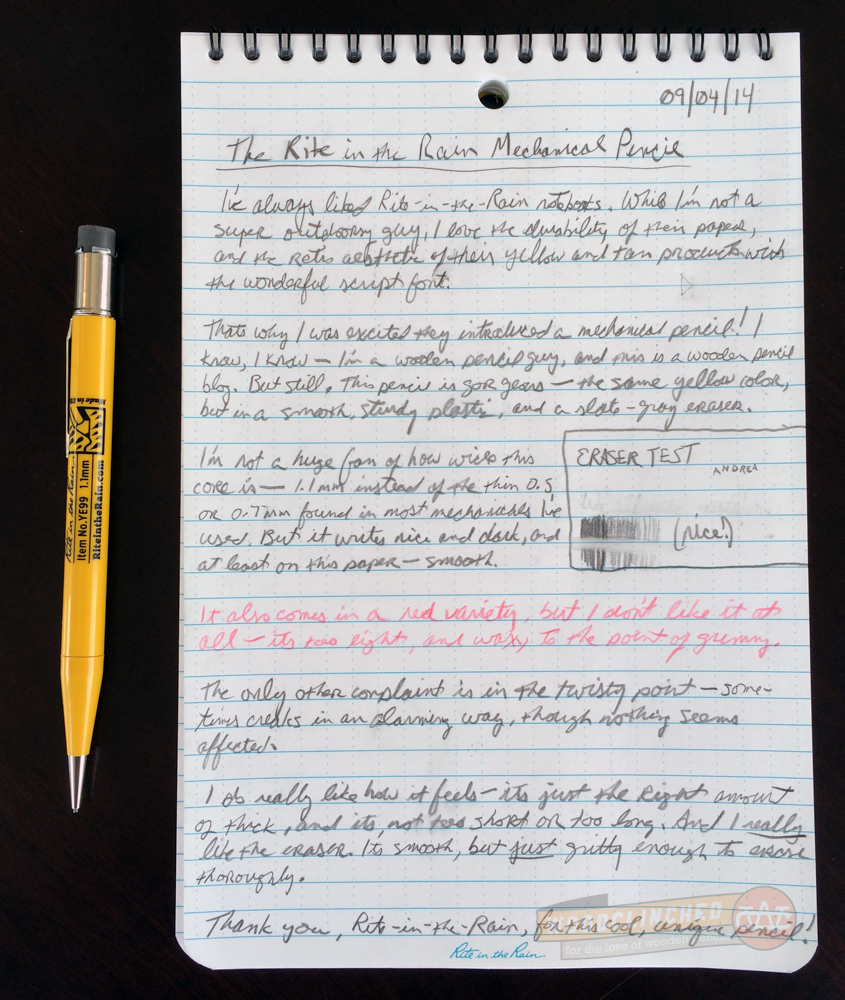 09/04/14
The Rite in the Rain Mechanical Pencil
I've always liked Rite-in-the-Rain notebooks. While I'm not a
super outdoorsy guy, I love the durability of their paper,
and the retro aesthetic of their yellow and tan products with
the wonderful script font.
Thats why I was excited they introduced a mechanical pencil! I
know, I know — I'm a wooden pencil guy, and this is a wooden pencil
blog. But still. This pencil is gorgeous — the same yellow color,
but in a smooth, sturdy plastic, and a slate-gray eraser.
I'm not a huge fan of how wide this
core is — 1.1mm instead of the thin 0.5
or 0.7mm found in most mechanicals I've
used. But it writes nice and dark, and
at least on this paper — smooth.
ERASER TEST
ANDREA
(nice!)
It also comes in a red variety, but I don't like it at
all — its too light, and waxy to the point of grimmy.
The only other complaint is in the twisty point — some-
times creaks in an alarming way, though nothing seems
affected.
I do really like how it feels — its just the right amount
of thick, and its not too short or too long. And I really
like the eraser. Its smooth, but just gritty enough to erase
thoroughly.
Thank you, Rite-in-the-Rain, for this cool, unique pencil!
Rite in the Rain
for the love of wooden
Made in U
Rite in the Rain
Item No.YE99 1.1mm
RiteintheRain.com